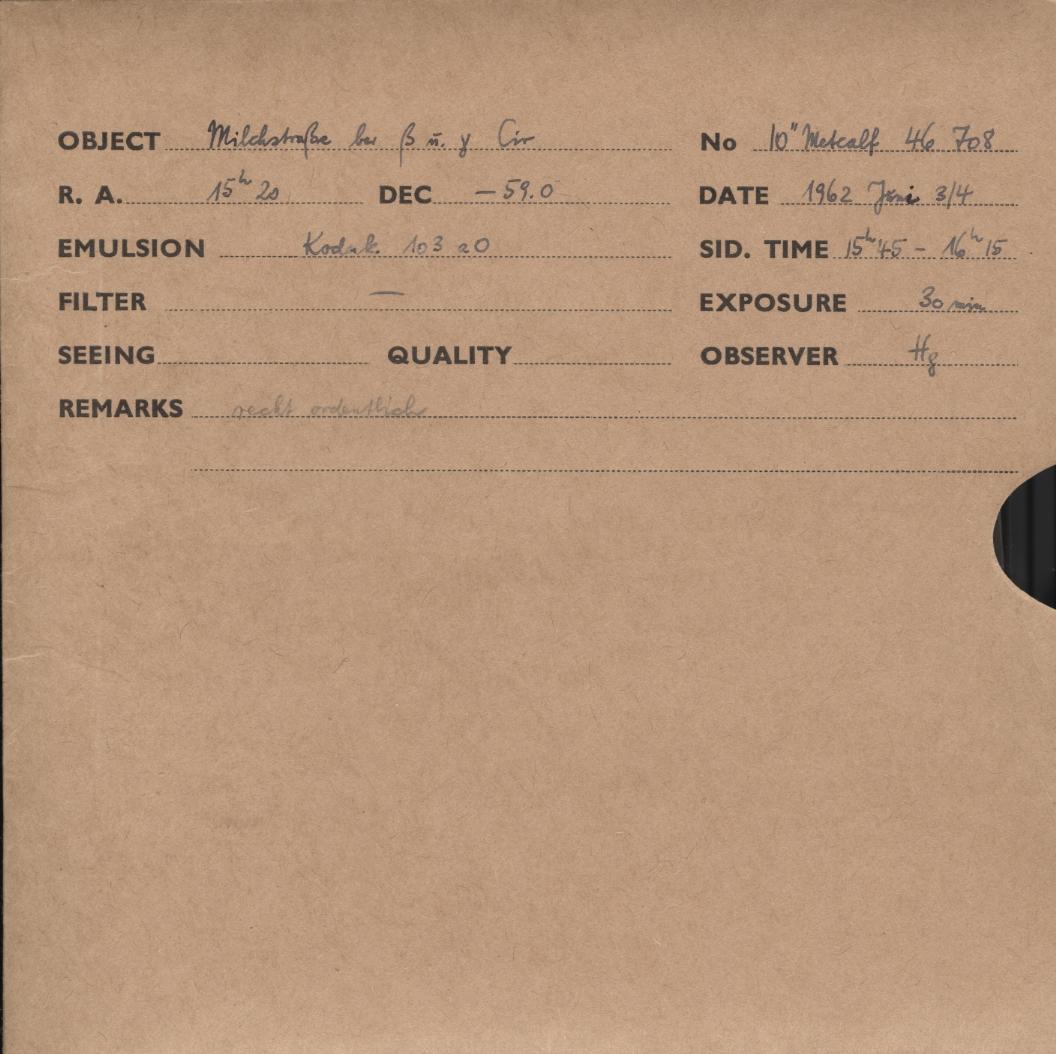 OBJECT Milchstraße bei β u. γ Cir No 10" Metcalf 46 708
R. A. 15h 20 DEC −59.0 DATE 1962 Juni 3/4
EMULSION Kodak 103 aO SID. TIME 15h45 - 16h15
FILTER — EXPOSURE 30 min
SEEING QUALITY OBSERVER Hg
REMARKS recht ordentlich